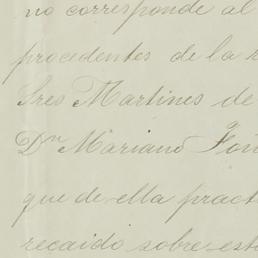 no corresponde al
procedentes de la
Sres Martines de
Dn Mariano
que de ella pract
recaido sobre est